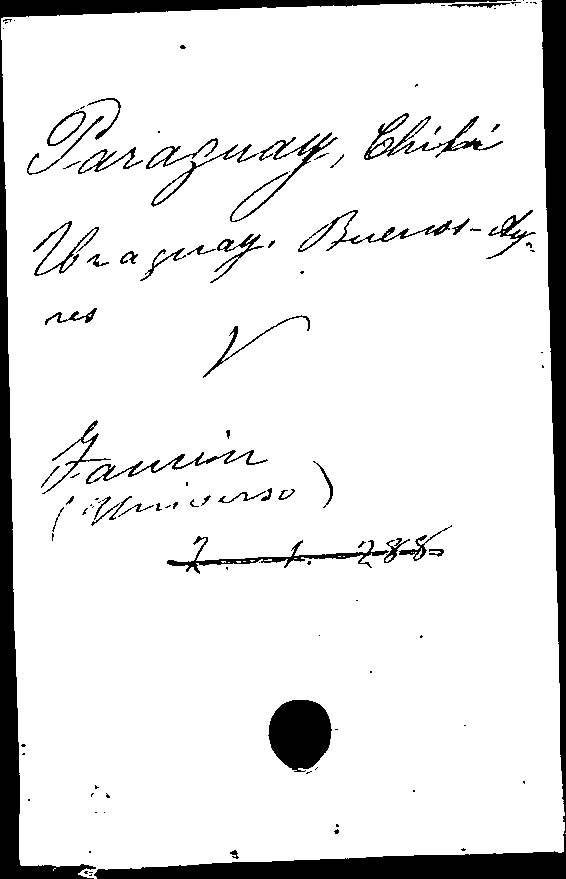 Paraguay, Chili
Uraguay. Buenos-Ay-
res
V
Famin
(Universo)
2. 1. 288